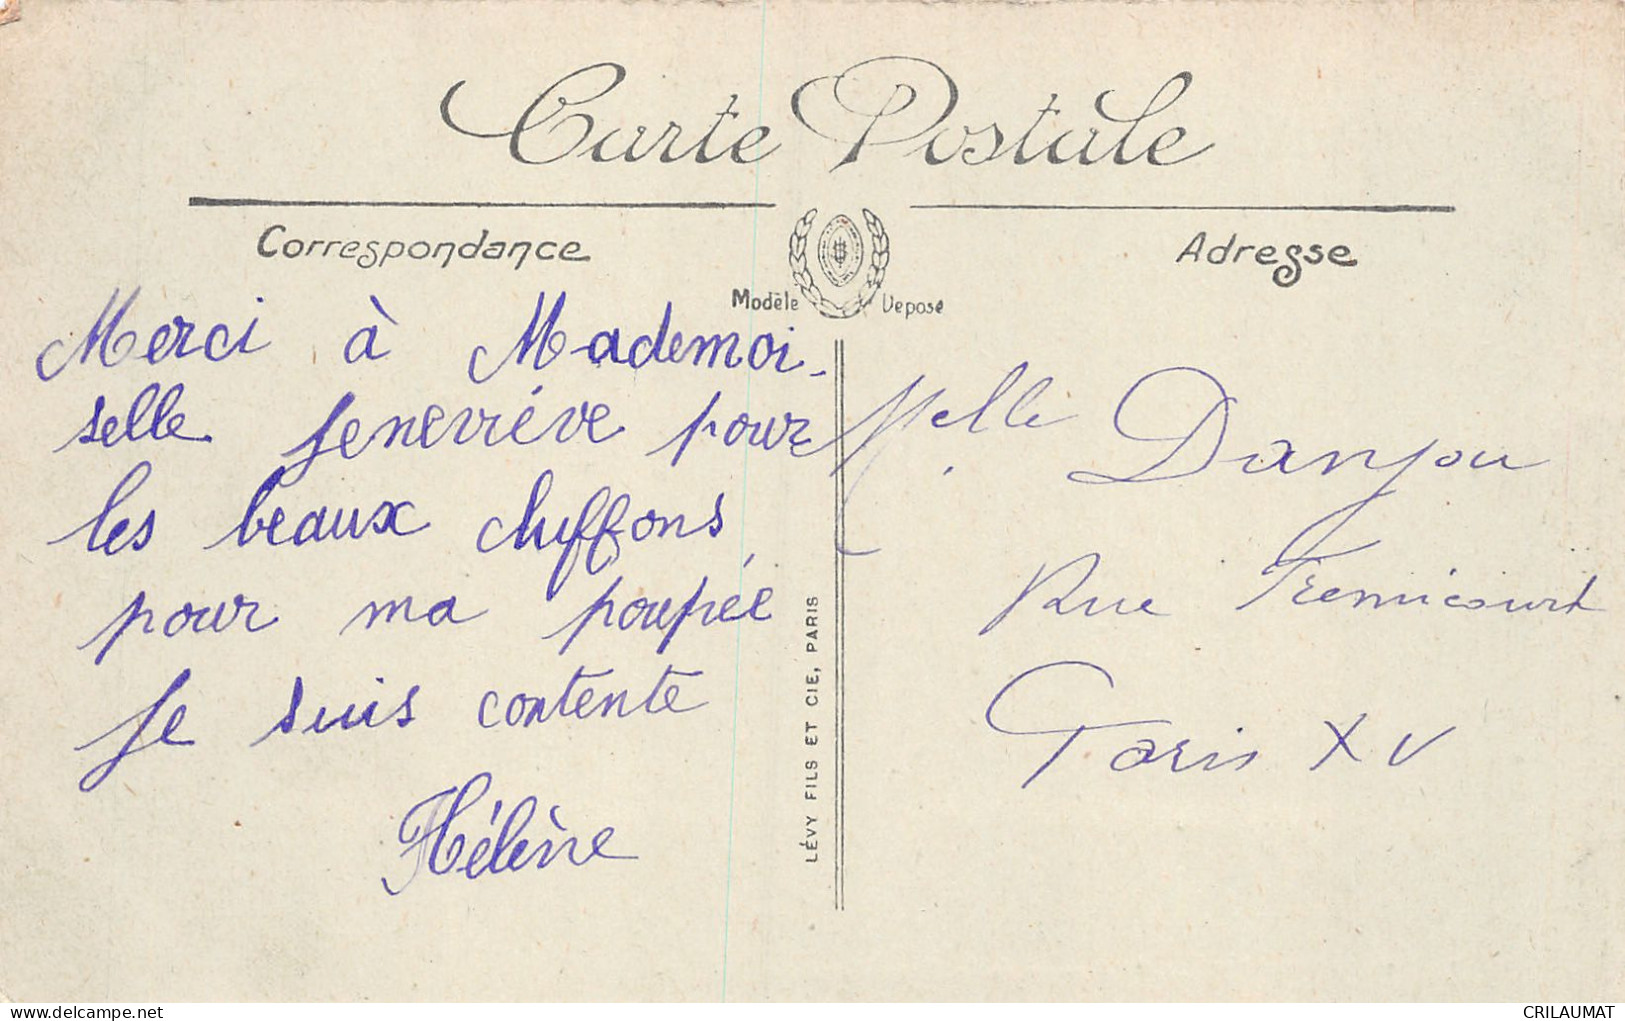 Carte Postale
Correspondance
Adresse
Modèle Déposé
Merci à Mademoi-
selle Geneviève pour
les beaux chiffons
pour ma poupée
Je suis contente
Hélène
LÉVY FILS ET CIE, PARIS
Melle Danjou
Rue Fremicourt
Paris XV
www.delcampe.net
CRILAUMAT